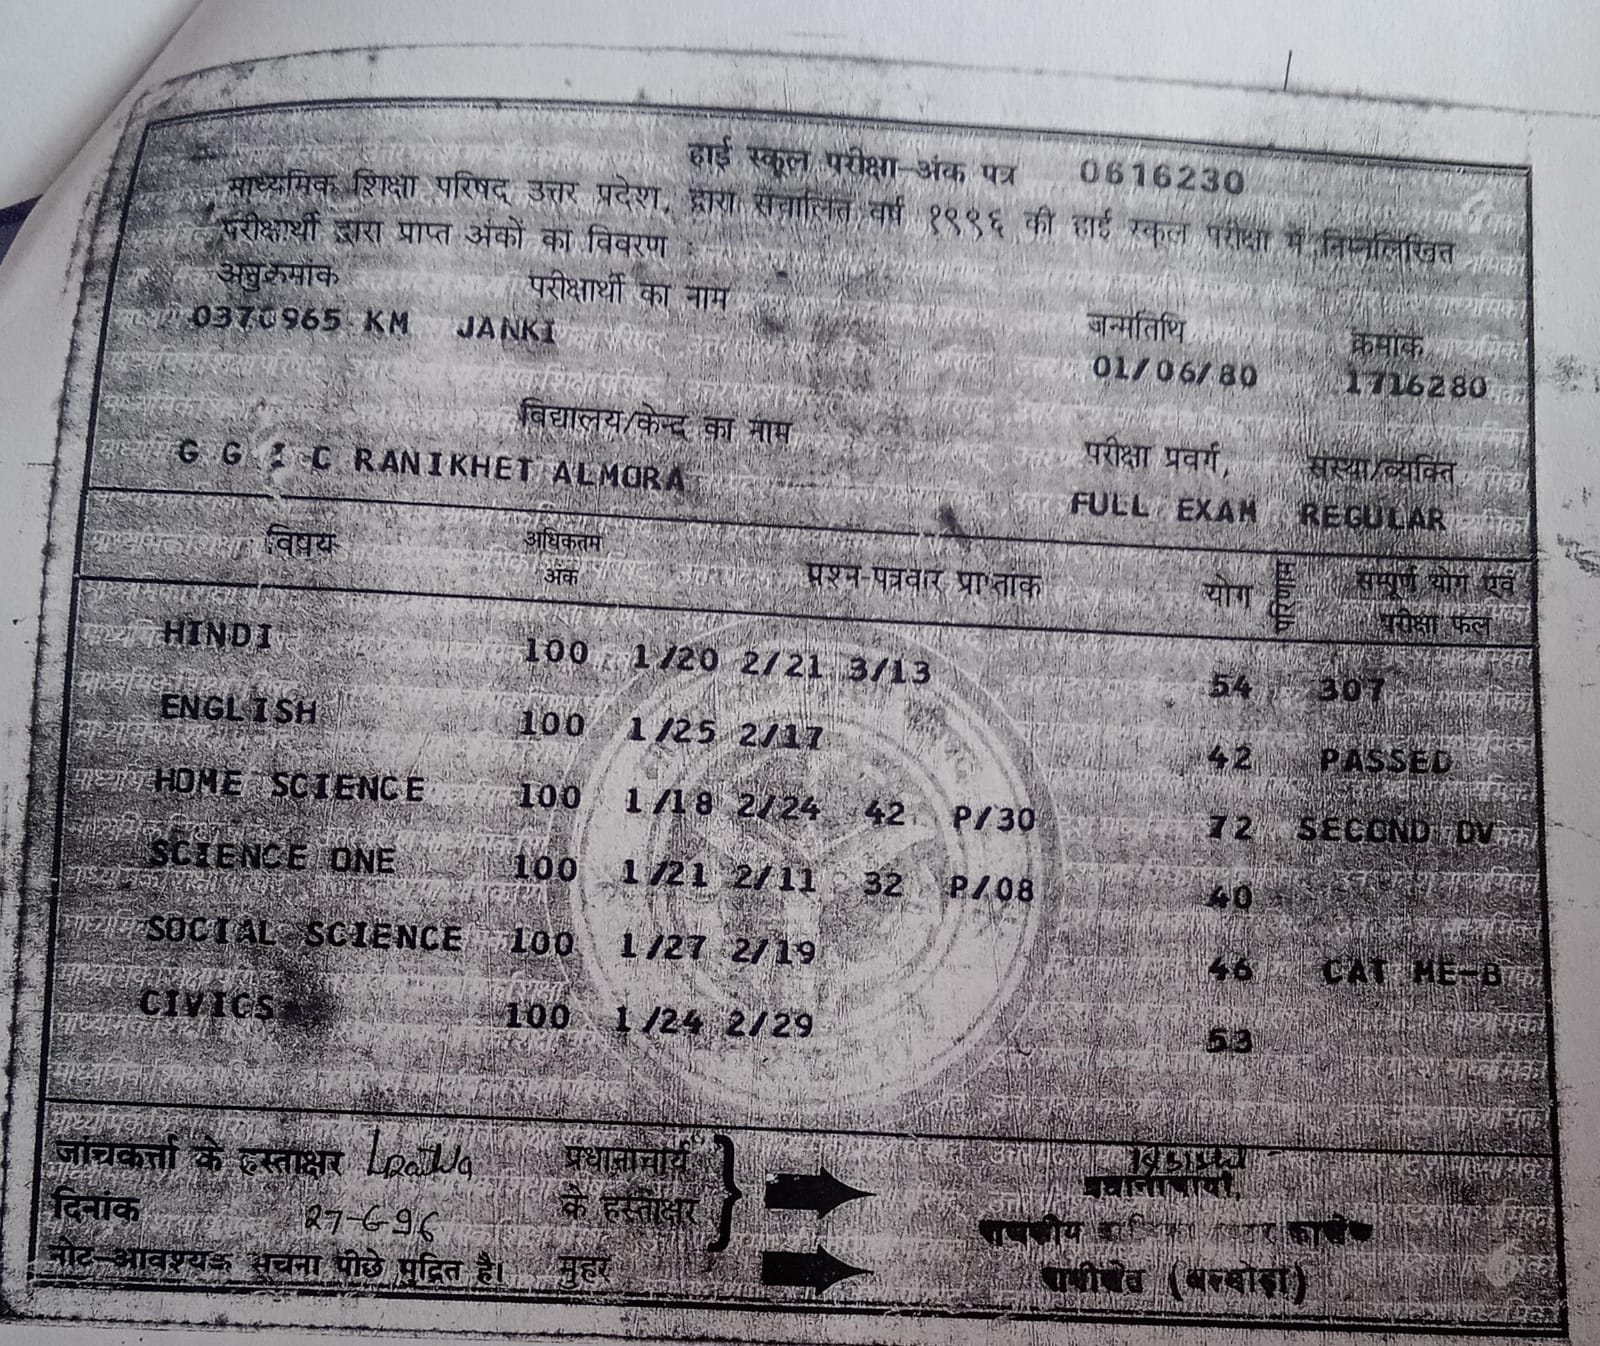 हाई स्कूल परीक्षा-अंक पत्र 0616230
माध्यमिक शिक्षा परिषद् उत्तर प्रदेश, द्वारा संचालित वर्ष १९९६ की हाई स्कूल परीक्षा में निम्नलिखित
परीक्षार्थी द्वारा प्राप्त अंकों का विवरण :
अनुक्रमांक परीक्षार्थी का नाम जन्मतिथि क्रमांक
0370965 KM JANKI 01/06/80 1716280
विद्यालय/केन्द्र का नाम परीक्षा प्रवर्ग, संस्था/व्यक्ति
G G I C RANIKHET ALMORA FULL EXAM REGULAR
विषय अधिकतम अंक प्रश्न-पत्रवार प्राप्तांक योग परिणाम सम्पूर्ण योग एवं परीक्षा फल
HINDI 100 1/20 2/21 3/13 54 307
ENGLISH 100 1/25 2/17 42 PASSED
HOME SCIENCE 100 1/18 2/24 42 P/30 72 SECOND DV
SCIENCE ONE 100 1/21 2/11 32 P/08 40
SOCIAL SCIENCE 100 1/27 2/19 46 CAT ME-B
CIVICS 100 1/24 2/29 53
जांचकर्त्ता के हस्ताक्षर प्रधानाचार्य
के हस्ताक्षर प्रधानाचार्या,
दिनांक 27-6-96 राजकीय कालेज
नोट-आवश्यक सूचना पीछे मुद्रित है। मुहर रानीखेत (अल्मोड़ा)